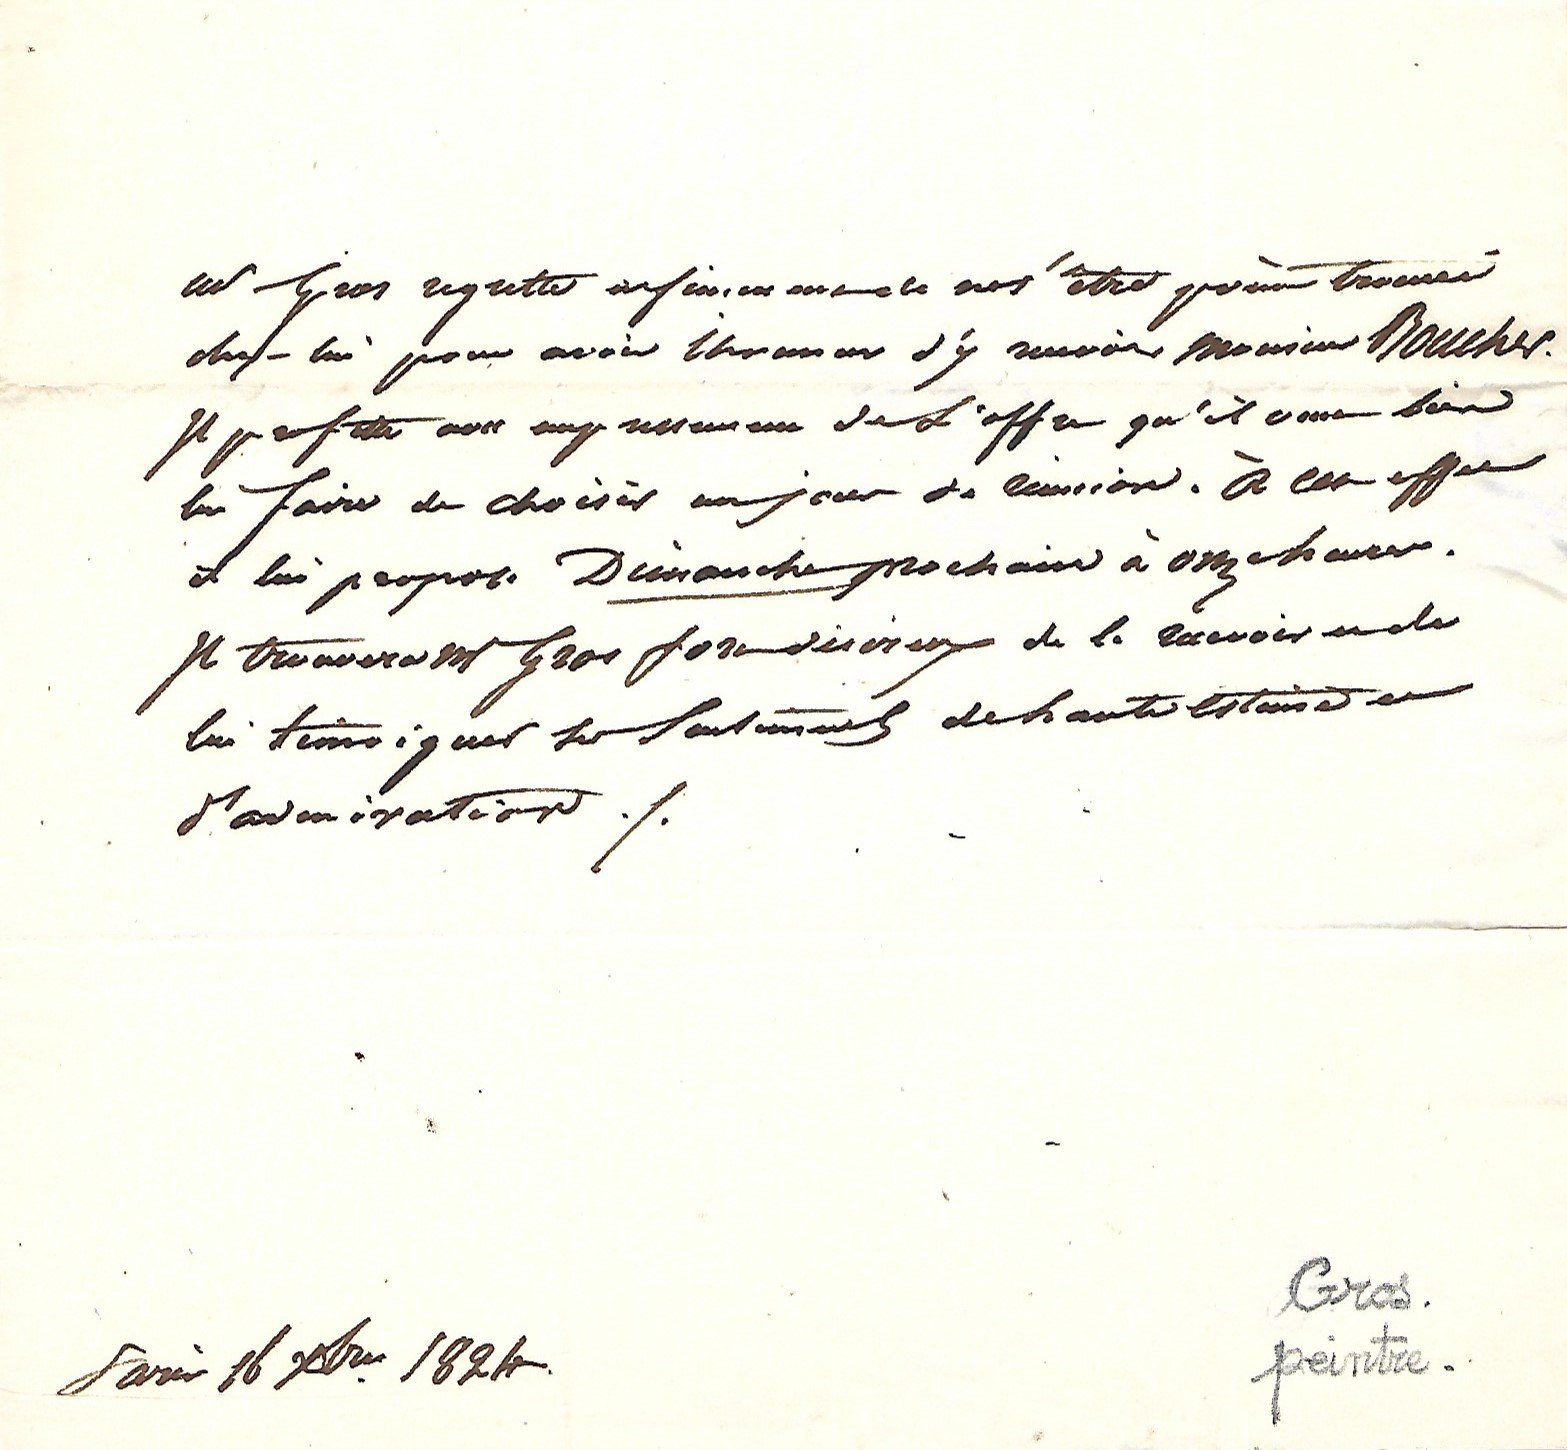 Mr Gros regrette infiniment de ne s'être point trouvé
chez-lui pour avoir l'honneur d'y recevoir Monsieur Boucher.
Il profite avec empressement de L'offre qu'il veut bien
lui faire de choisir un jour de réunion. À cet effet
il lui propose Dimanche prochain à onze heures.
Il trouvera Mr Gros fort désireux de le recevoir et de
lui témoigner ses Sentiments de haute Estime et
d'admiration ./.
Paris 16 Xbre. 1824.
Gros.
peintre.